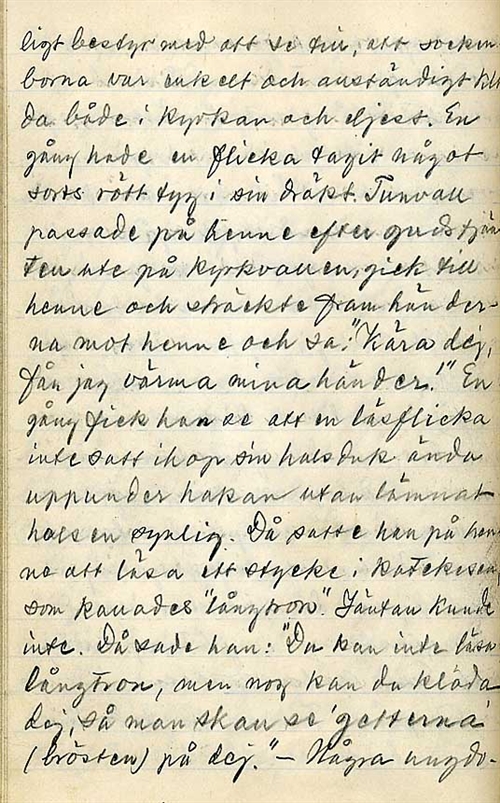 ligt bestyr med att se till, att socken-
borna var enkelt och anständigt kläd-
da både i kyrkan och eljest. En
gång hade en flicka tagit något
sorts rött tyg i sin dräkt. Tunvall
passade på henne efter gudstjäns-
ten ute på kyrkvallen, gick till
henne och sträckte fram händer-
na mot henne och sa: "Kära dej,
får jag värma mina händer!" En
gång fick han se att en läsflicka
inte satt ihop sin halsduk ända
uppunder hakan utan lämnat
halsen synlig. Då satte han på hen-
ne att läsa ett stycke i katekesen
som kallades "långtron". Jäntan kunde
inte. Då sade han: "Du kan inte läsa
långtron, men nog kan du kläda
dej, så man skall se 'getterna'
(brösten) på dej." – Några ungdo-